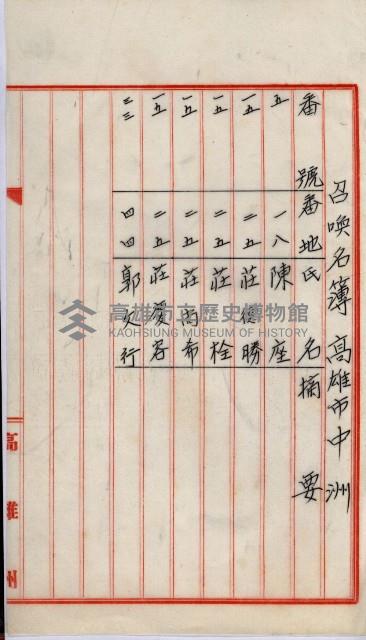 召喚名簿 高雄市中洲
番號 番地 氏名 摘要
五 一八 陳座
一五 二五 莊德勝
一五 二五 莊栓
一五 二五 莊尚希
一五 二五 莊愛容
三三 四四 郭文行
高雄州
高雄市立歷史博物館
KAOHSIUNG MUSEUM OF HISTORY